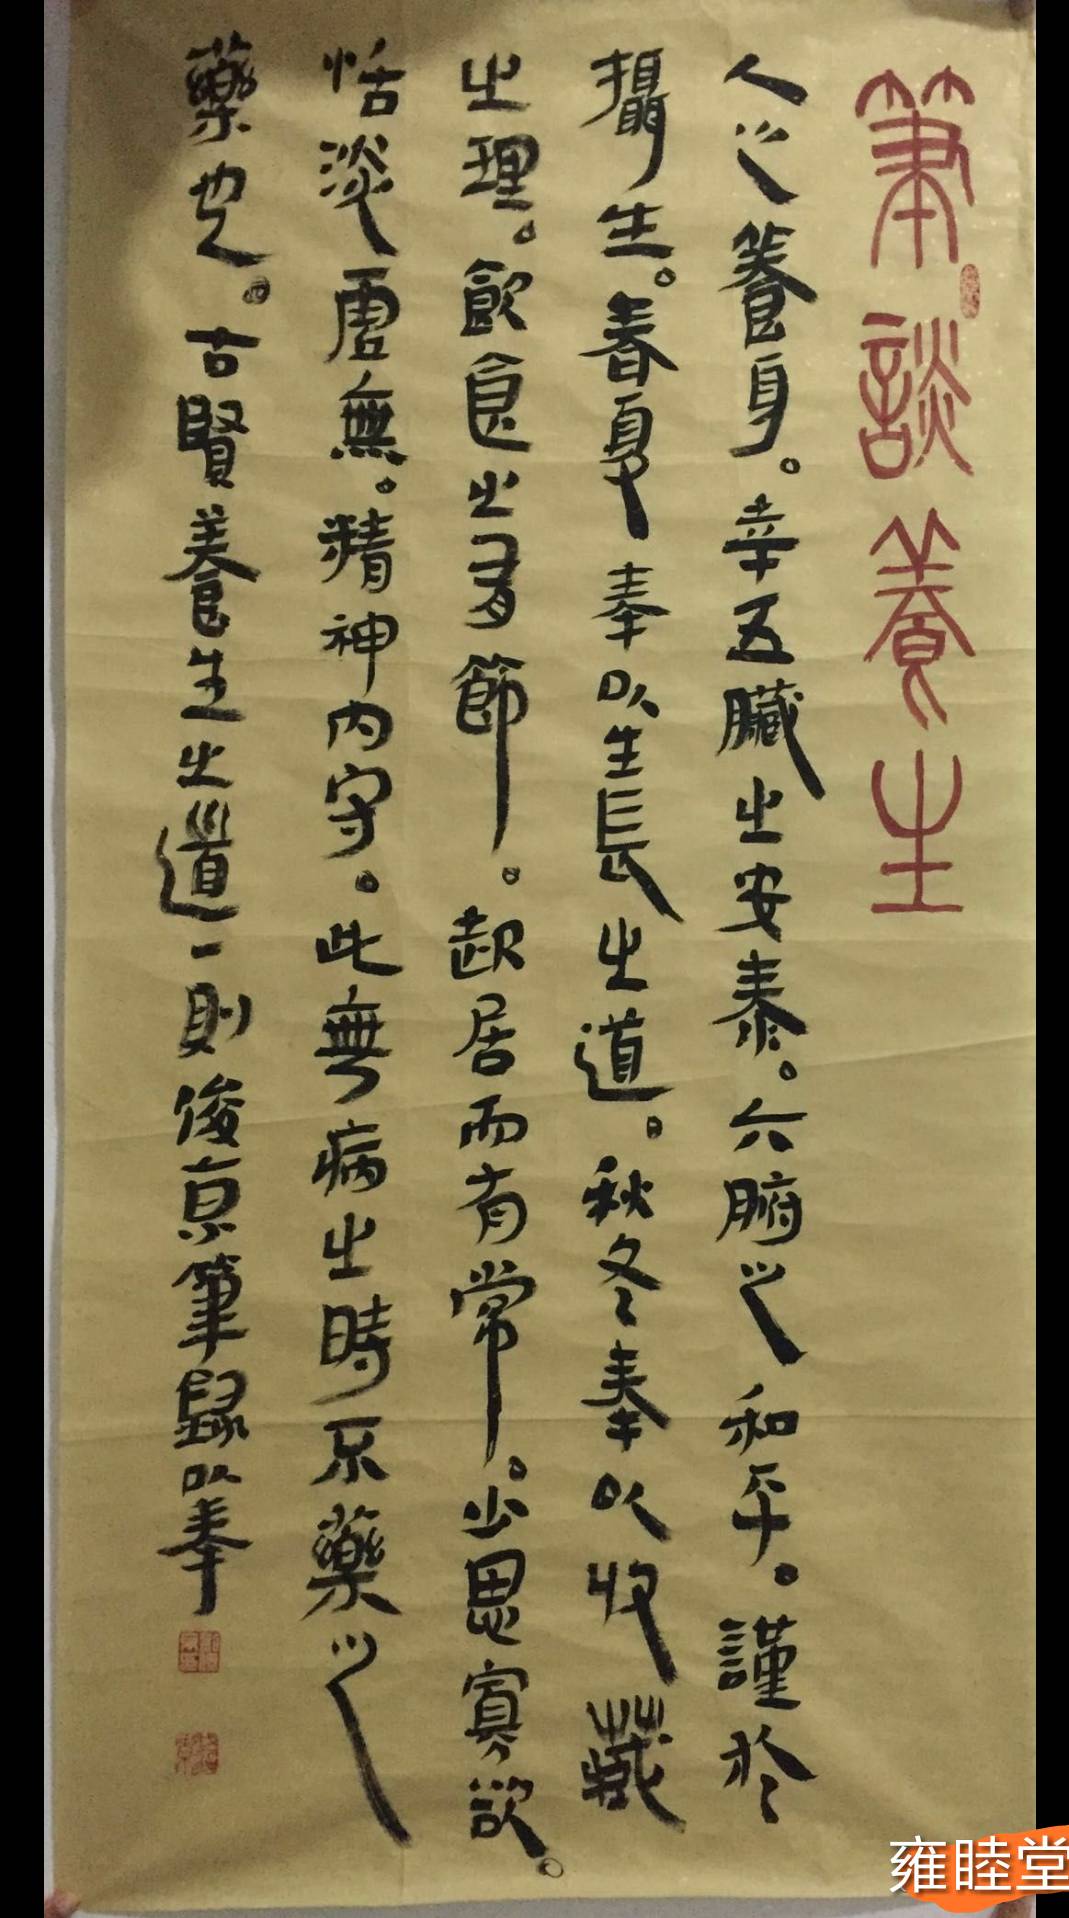 筆談養生
人之養身。幸五臟之安泰。六腑之和平。謹於
攝生。春夏奉以生長之道。秋冬奉以收藏
之理。飲食之有節。起居而有常。少思寡欲。
恬淡虛無。精神内守。此無病之時不藥之
藥也。古賢養生之道一則俊京筆錄以奉
雍睦堂